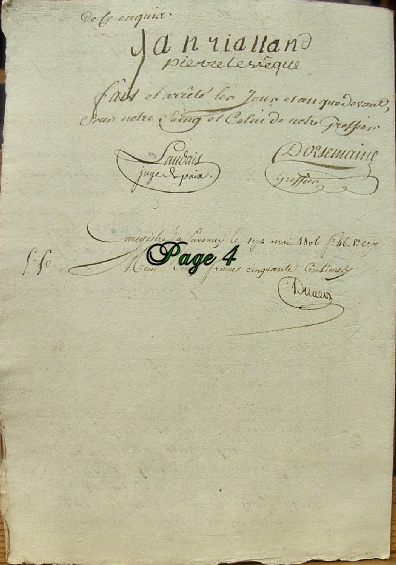 de ce enquis.
Jan rialland
pierre leveque
fait et arrêté les Jour et an que devant,
Sous notre Seing et Celui de notre Greffier
Landais Dorsemaine
juge de paix. Greffier
Enregistré à Savenay le mai 1806 f.
Reçu francs cinquante Centimes
Page 4